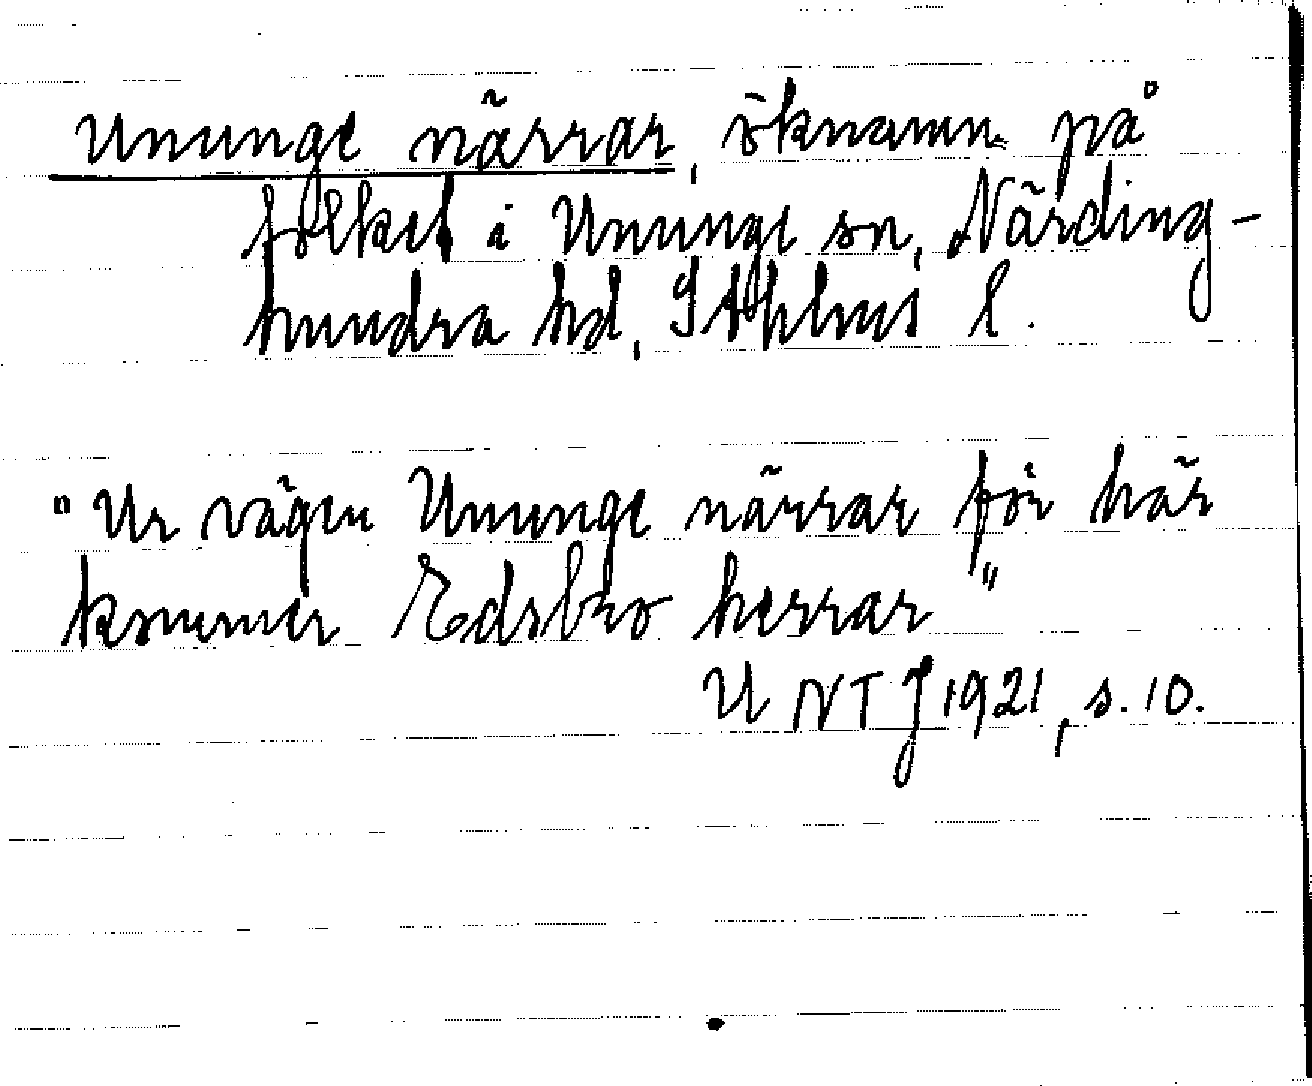 Ununge närrar, öknamn på
folket i Ununge sn, Närding-
hundra hd, Sthlms l.
"Ur vägen Ununge närrar för här
kommer Edsbro herrar"
UNTJ 1921, s. 10.